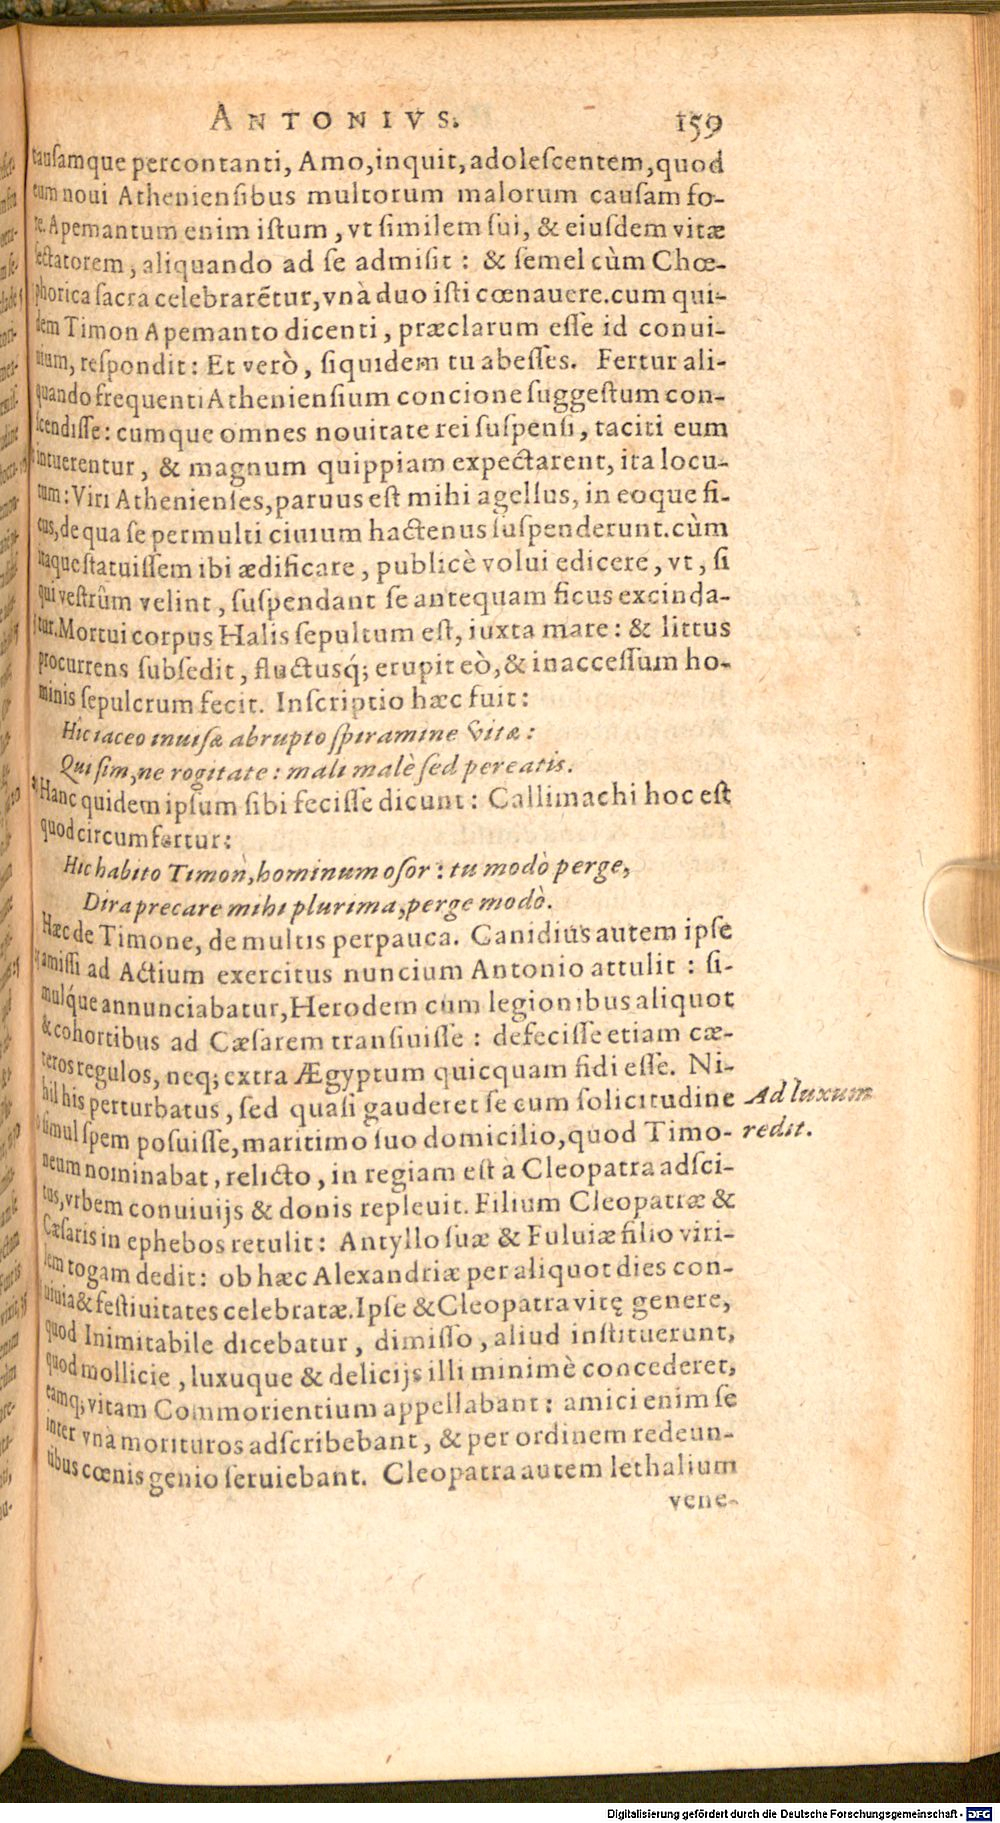 ANTONIVS. 159
causamque percontanti, Amo, inquit, adolescentem, quod
eum noui Atheniensibus multorum malorum causam fo-
re. Apemantum enim istum, vt similem sui, & eiusdem vitæ
sectatorem, aliquando ad se admisit: & semel cùm Chœ-
phorica sacra celebrarẽtur, vnà duo isti cœnauere. cum qui-
dem Timon Apemanto dicenti, præclarum esse id conui-
uium, respondit: Et verò, siquidem tu abesses. Fertur ali-
quando frequenti Atheniensium concione suggestum con-
scendisse: cumque omnes nouitate rei suspensi, taciti eum
intuerentur, & magnum quippiam expectarent, ita locu-
tum: Viri Athenienses, paruus est mihi agellus, in eoque fi-
cus, de qua se permulti ciuium hactenus suspenderunt. cùm
itaque statuissem ibi ædificare, publicè volui edicere, vt, si
qui vestrûm velint, suspendant se antequam ficus excinda-
tur. Mortui corpus Halis sepultum est, iuxta mare: & littus
procurrens subsedit, fluctusq́; erupit eò, & inaccessum ho-
minis sepulcrum fecit. Inscriptio hæc fuit:
Hic iaceo inuisæ abrupto spiramine vitæ:
Qui sim, ne rogitate: mali malè sed pereatis.
Hanc quidem ipsum sibi fecisse dicunt: Callimachi hoc est
quod circumfertur:
Hic habito Timon, hominum osor: tu modò perge,
Dira precare mihi plurima, perge modò.
Hæc de Timone, de multis perpauca. Canidius autem ipse
amissi ad Actium exercitus nuncium Antonio attulit: si-
mulq́ue annunciabatur, Herodem cum legionibus aliquot
& cohortibus ad Cæsarem transiuisse: defecisse etiam cæ-
teros regulos, neq; extra Ægyptum quicquam fidi esse. Ni-
hil his perturbatus, sed quasi gauderet se cum solicitudine
Ad luxum
simul spem posuisse, maritimo suo domicilio, quod Timo-
redit.
neum nominabat, relicto, in regiam est à Cleopatra adsci-
tus, vrbem conuiuijs & donis repleuit. Filium Cleopatræ &
Cæsaris in ephebos retulit: Antyllo suæ & Fuluiæ filio viri-
lem togam dedit: ob hæc Alexandriæ per aliquot dies con-
uiuia & festiuitates celebratæ. Ipse & Cleopatra vitę genere,
quod Inimitabile dicebatur, dimisso, aliud instituerunt,
quod mollicie, luxuque & delicijs illi minimè concederet,
eamq; vitam Commorientium appellabant: amici enim se
inter vnà morituros adscribebant, & per ordinem redeun-
tibus cœnis genio seruiebant. Cleopatra autem lethalium
vene-
Digitalisierung gefördert durch die Deutsche Forschungsgemeinschaft - DFG